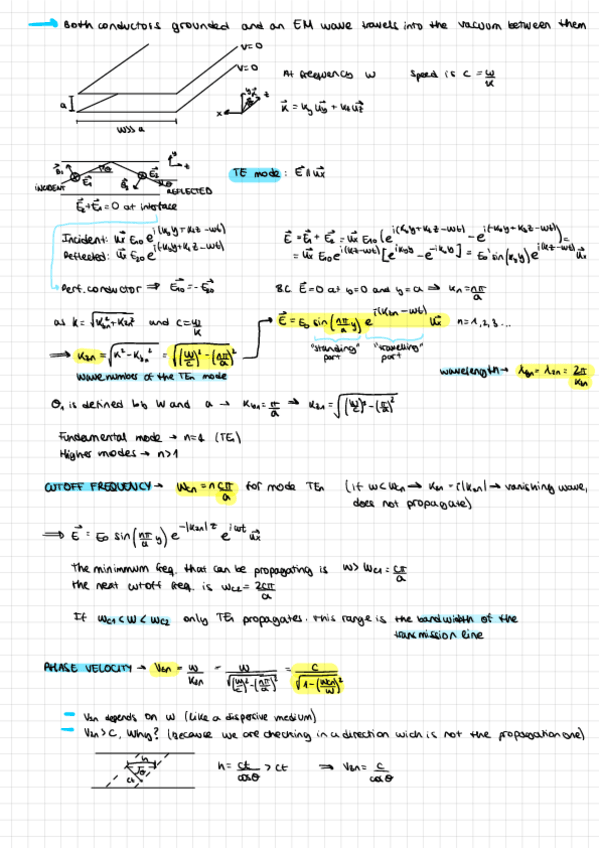 → Both conductors grounded and an EM wave travels into the vacuum between them
V=0
V=0
At frequency w Speed is c = w/k
a
w>>a
x y z
k⃗ = ky u⃗y + kz u⃗z
TE mode: E⃗ ∥ u⃗x
INCIDENT REFLECTED
E⃗2+E⃗1=0 at interface
Incident: u⃗x E10 e^i(kyy+kzz-wt)
Reflected: u⃗x E20 e^i(-kyy+kzz-wt)
E⃗ = E⃗1 + E⃗2 = u⃗x E10 (e^i(kyy+kzz-wt) - e^i(-kyy+kzz-wt)) =
= u⃗x E10 e^i(kz-wt) [e^ikyy - e^-ikyy] = E0' sin(kyy) e^i(kz-wt) u⃗x
Perf. conductor ⇒ E⃗10 = -E⃗20
B.C. E⃗=0 at y=0 and y=a ⇒ kn = nπ/a
as k = √(kyn²+kzn²) and c = w/k
E⃗ = E0 sin(nπ/a y) e^i(kzn-wt) u⃗x n=1,2,3...
"standing" part "travelling" part
⇒ kzn = √(k²-kyn²) = √((w/c)²-(nπ/a)²)
wavenumber of the TEn mode
wavelength → λgn = λzn = 2π/kzn
θ1 is defined by w and a → ky1 = π/a ⇒ kz1 = √((w/c)²-(π/a)²)
Fundamental mode → n=1 (TE1)
Higher modes → n>1
CUTOFF FREQUENCY → wcn = n cπ/a for mode TEn (if w<wcn → kzn = i|kzn| → vanishing wave,
does not propagate)
⇒ E⃗ = E0 sin(nπ/a y) e^-|kzn|z e^iwt u⃗x
The minimum freq. that can be propagating is w>wc1 = cπ/a
the next cutoff freq. is wc2 = 2cπ/a
If wc1<w<wc2 only TE1 propagates. This range is the bandwidth of the
transmission line
PHASE VELOCITY → vzn = w/kzn = w/√((w/c)²-(nπ/a)²) = c/√(1-(wcn/w)²)
- vzn depends on w (like a dispersive medium)
- vzn>c, why? (because we are checking in a direction wich is not the propagation one)
h
θ
ct
h = ct/cosθ > ct ⇒ vzn = c/cosθ